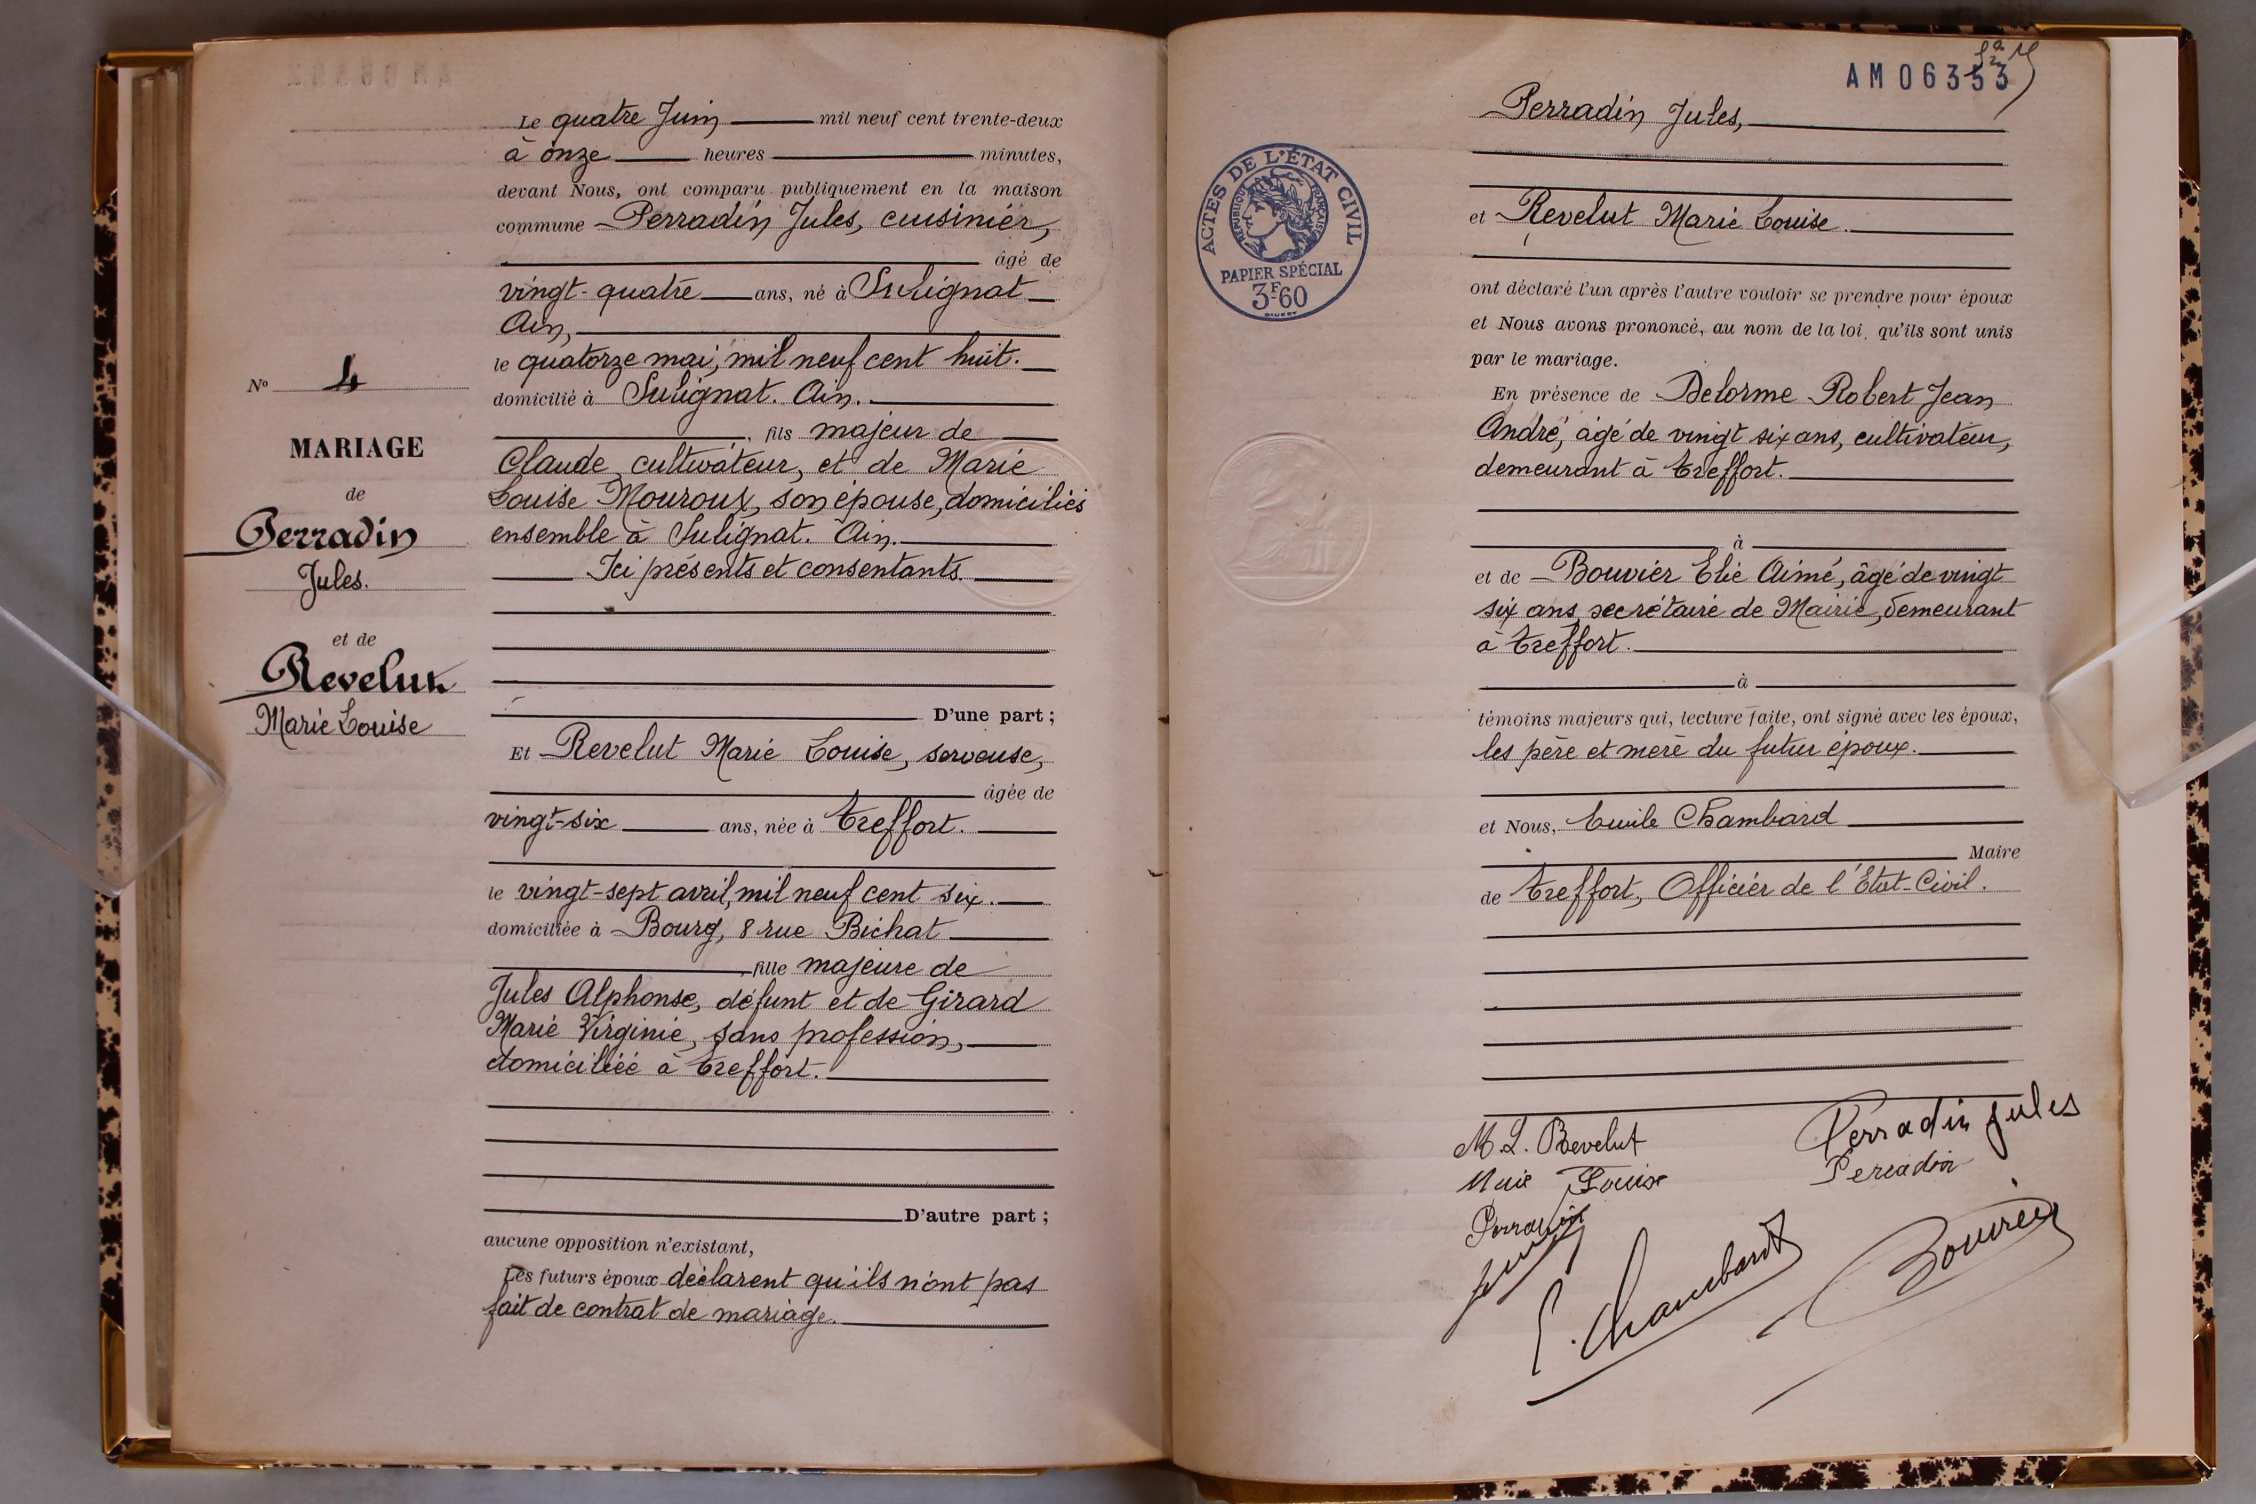 Le quatre Juin mil neuf cent trente-deux
à onze heures minutes,
devant Nous, ont comparu publiquement en la maison
commune Perradin Jules, cuisinier,
âgé de
vingt-quatre ans, né à Sulignat
Ain,
le quatorze mai, mil neuf cent huit.
domicilié à Sulignat. Ain.
, fils majeur de
Claude, cultivateur, et de Marie
Louise Mouroux, son épouse, domiciliés
ensemble à Sulignat. Ain.
Ici présents et consentants.
D'une part ;
Et Revelut Marie Louise, serveuse,
âgée de
vingt-six ans, née à Treffort.
le vingt-sept avril, mil neuf cent six.
domiciliée à Bourg, 8 rue Bichat
, fille majeure de
Jules Alphonse, défunt et de Girard
Marie Virginie, sans profession,
domiciliée à Treffort.
D'autre part ;
aucune opposition n'existant,
Les futurs époux déclarent qu'ils n'ont pas
fait de contrat de mariage.
No 4
MARIAGE
de
Perradin
Jules.
et de
Revelut
Marie Louise
AM06353
ACTES DE L'ÉTAT CIVIL
RÉPUBLIQUE FRANÇAISE
PAPIER SPÉCIAL
3F60
Perradin Jules,
et Revelut Marie Louise.
ont déclaré l'un après l'autre vouloir se prendre pour époux
et Nous avons prononcé, au nom de la loi, qu'ils sont unis
par le mariage.
En présence de Delorme Robert Jean
André, âgé de vingt six ans, cultivateur,
demeurant à Treffort.
à
et de Bouvier Elie Aimé, âgé de vingt
six ans, secrétaire de Mairie, demeurant
à Treffort.
à
témoins majeurs qui, lecture faite, ont signé avec les époux,
les père et mère du futur époux.
et Nous, Emile Chambard
Maire
de Treffort, Officier de l'Etat-Civil.
M. L. Revelut
Perradin Jules
Marie Louise
Perradin
Perradin
E. Chambard
Bouvier